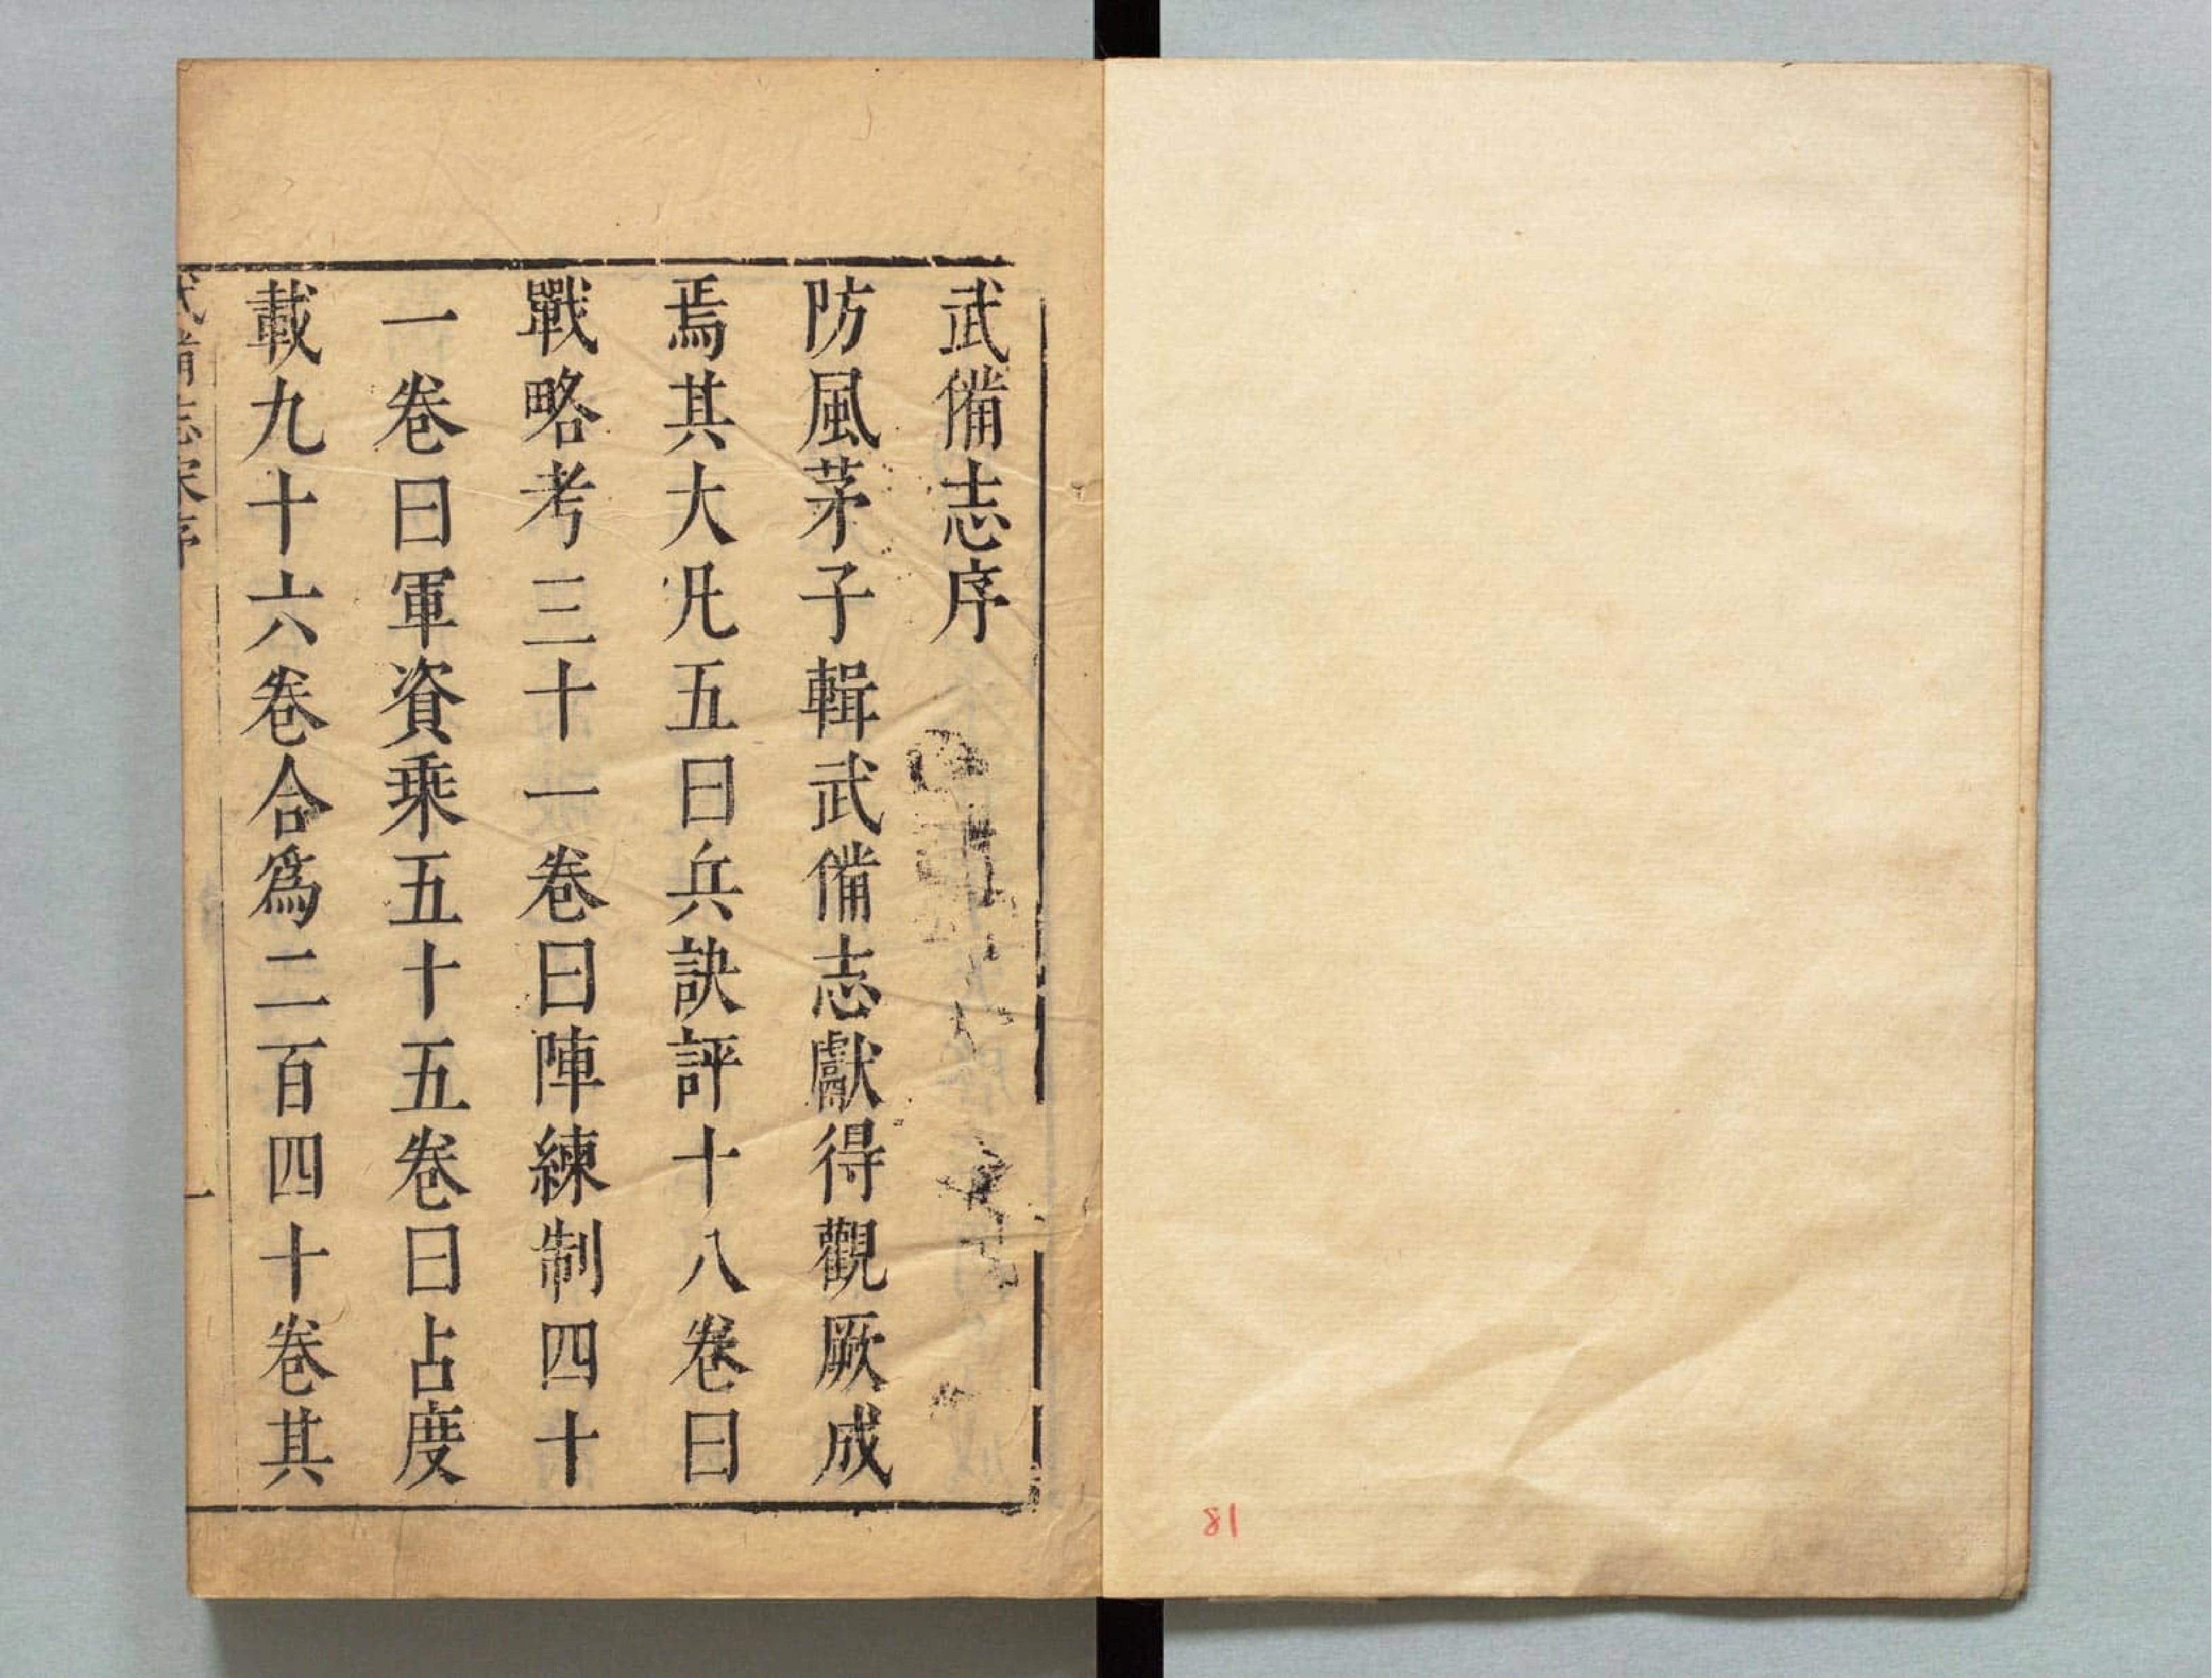 武備志序
防風茅子輯武備志獻得觀厥成
焉其大凡五曰兵訣評十八卷曰
戰略考三十一卷曰陣練制四十
一卷曰軍資乘五十五卷曰占度
載九十六卷合爲二百四十卷其
武備志宋序
一
81